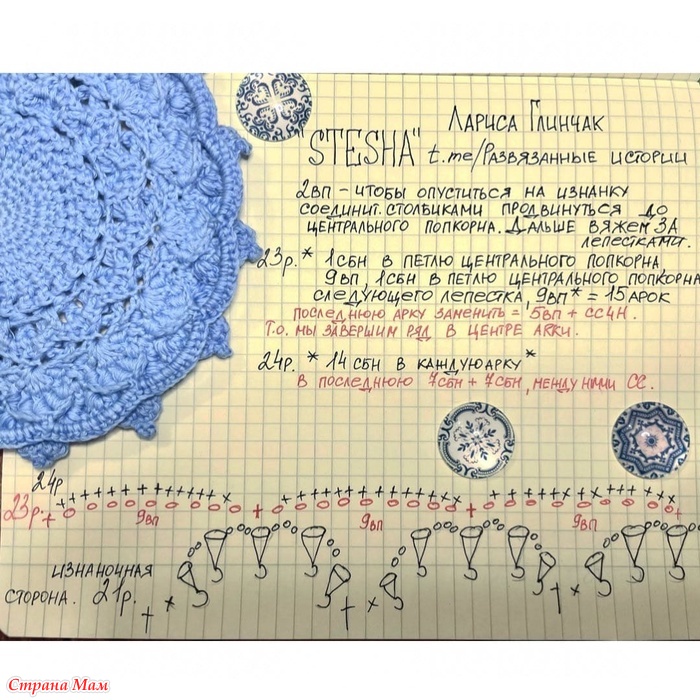 Лариса Глинчак
"STESHA" t.me/Развязанные истории
2вп - чтобы опуститься на изнанку
соединит. столбиками продвинуться до
центрального попкорна. Дальше вяжем за
лепестками.
23р. * 1сбн в петлю центрального попкорна
9вп, 1сбн в петлю центрального попкорна
следующего лепестка, 9вп* = 15 арок
последнюю арку заменить = 5вп + сс4н.
т.о. мы завершим ряд в центре арки.
24р. * 14 сбн в каждую арку *
в последнюю 7сбн + 7сбн, между ними сс.
24р
23р.
9вп 9вп 9вп
изнаночная
сторона. 21р.
Страна Мам